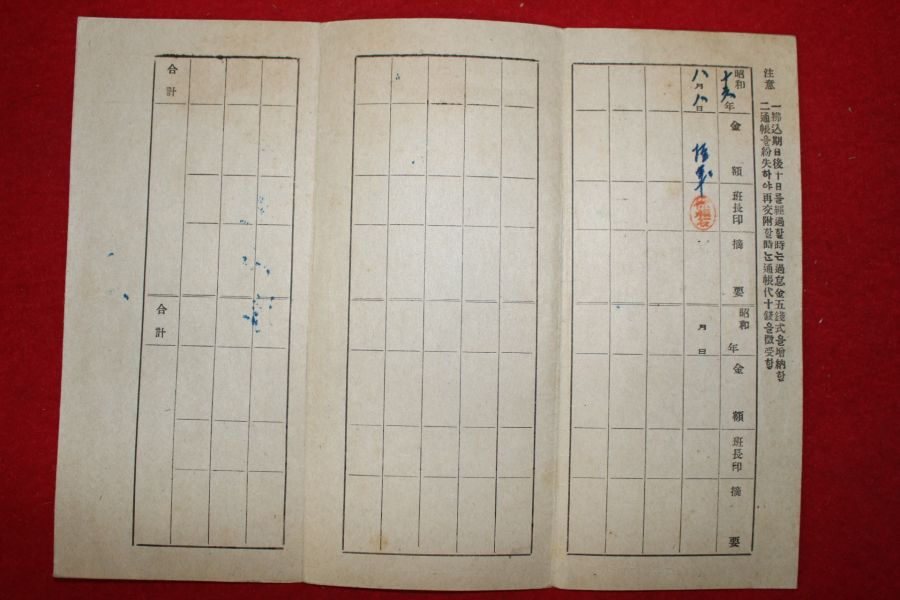 注意
一 拂込期日後十日을經過할時는過怠金五錢式을增納함
二 通帳을紛失하야再交附할時는通帳代十錢을徵受함
昭和 年
金額
班長印
摘要
昭和 年
金額
班長印
摘要
八月八日
月 日
合計
合計